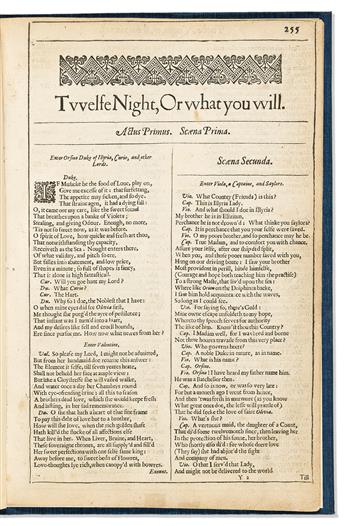 255
Twelfe Night, Or what you will.
Actus Primus. Scæna Prima.
Enter Orsino Duke of Illyria, Curio, and other
Lords.
Duke.
If Musicke be the food of Loue, play on,
Giue me excesse of it: that surfetting,
The appetite may sicken, and so dye.
That straine agen, it had a dying fall:
O, it came ore my eare, like the sweet sound
That breathes vpon a banke of Violets;
Stealing, and giuing Odour. Enough, no more,
'Tis not so sweet now, as it was before.
O spirit of Loue, how quicke and fresh art thou,
That notwithstanding thy capacity,
Receiueth as the Sea. Nought enters there,
Of what validity, and pitch so ere,
But falles into abatement, and low price
Euen in a minute; so full of shapes is fancy,
That it alone is high fantasticall.
Cur. Will you go hunt my Lord?
Du. What Curio?
Cur. The Hart.
Du. Why so I do, the Noblest that I haue:
O when mine eyes did see Oliuia first,
Me thought she purg'd the ayre of pestilence;
That instant was I turn'd into a Hart,
And my desires like fell and cruell hounds,
Ere since pursue me. How now what newes from her?
Enter Valentine,
Val. So please my Lord, I might not be admitted,
But from her handmaid do returne this answer:
The Element it selfe, till seuen yeares heate,
Shall not behold her face at ample view:
But like a Cloystresse she will vailed walke,
And water once a day her Chamber round
With eye-offending brine: all this to season
A brothers dead loue, which she would keepe fresh
And lasting, in her sad remembrance.
Du. O she that hath a heart of that fine frame
To pay this debt of loue but to a brother,
How will she loue, when the rich golden shaft
Hath kill'd the flocke of all affections else
That liue in her. When Liuer, Braine, and Heart,
These soueraigne thrones, are all supply'd and fill'd
Her sweete perfections with one selfe same king:
Away before me, to sweet beds of Flowres,
Loue-thoughts lye rich, when canopy'd with bowres.
Exeunt
Scæna Secunda.
Enter Viola, a Captaine, and Saylors.
Vio. What Country (Friends) is this?
Cap. This is Illyria Ladie.
Vio. And what should I doe in Illyria?
My brother he is in Elizium,
Perchance he is not drown'd: What thinke you saylors?
Cap. It is perchance that you your selfe were saued.
Vio. O my poore brother, and so perchance may he be.
Cap. True Madam, and to comfort you with chance,
Assure your selfe, after our ship did split,
When you, and those poore number saued with you,
Hung on our driuing boate: I saw your brother
Most prouident in perill, binde himselfe,
(Courage and hope both teaching him the practise)
To a strong Maste, that liu'd vpon the sea:
Where like Orion on the Dolphines backe,
I saw him hold acquaintance with the waues,
So long as I could see.
Vio. For saying so, there's Gold:
Mine owne escape vnfoldeth to my hope,
Whereto thy speech serues for authoritie
The like of him. Know'st thou this Countrey?
Cap. I Madam well, for I was bred and borne
Not three houres trauaile from this very place
Vio. Who gouernes heere?
Cap. A noble Duke in nature, as in name.
Vio. What is his name?
Cap. Orsino.
Vio. Orsino: I haue heard my father name him.
He was a Batchellor then.
Cap. And so is now, or was so very late:
For but a month ago I went from hence,
And then 'twas fresh in murmure (as you know
What great ones do, the lesse will prattle of,)
That he did seeke the loue of faire Oliuia.
Vio. What's shee?
Cap. A vertuous maid, the daughter of a Count
That dide some tweluemonth since, then leauing her
In the protection of his sonne, her brother,
Who shortly also dide: for whose deere loue
(They say) she hath abiur'd the sight
And company of men.
Vio. O that I seru'd that Lady,
And might not be deliuered to the world
Y 2
Till